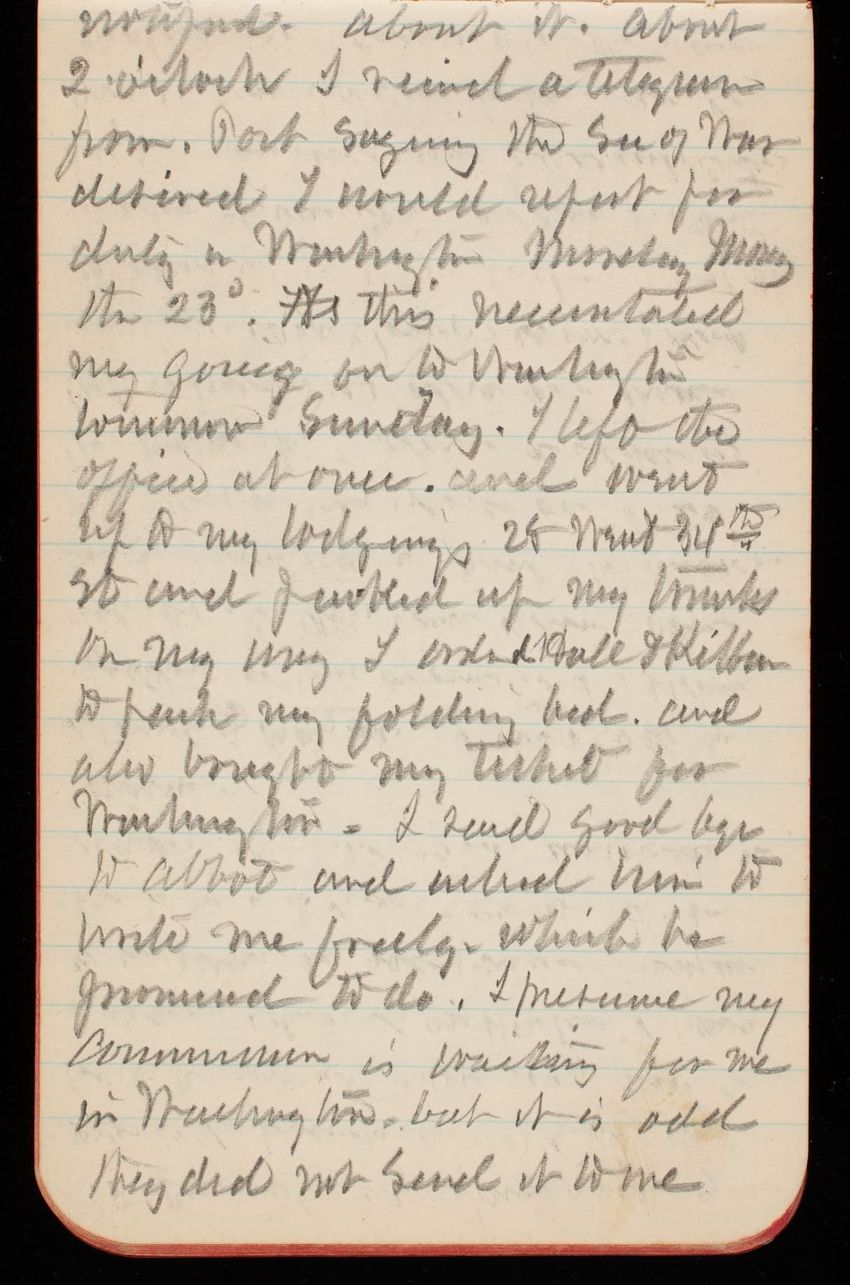 notified. about it. about
2 o'clock I recived a telegram
from. Port saying the Sec of War
desired I would report for
duty in Washington Monday
the 23d. As this necessitated
my going on to Washington
tomorrow Sunday. I left the
office at once. and went
up to my lodgings 25 West 34th
St and packed up my trunks
On my way I ordered Hale & Kilburn
to pack my folding bed. and
also bought my ticket for
Washington - I said good bye
to Abbot and asked him to
write me freely. which he
promised to do. I presume my
Commission is waiting for me
in Washington. but it is odd
they did not send it to me